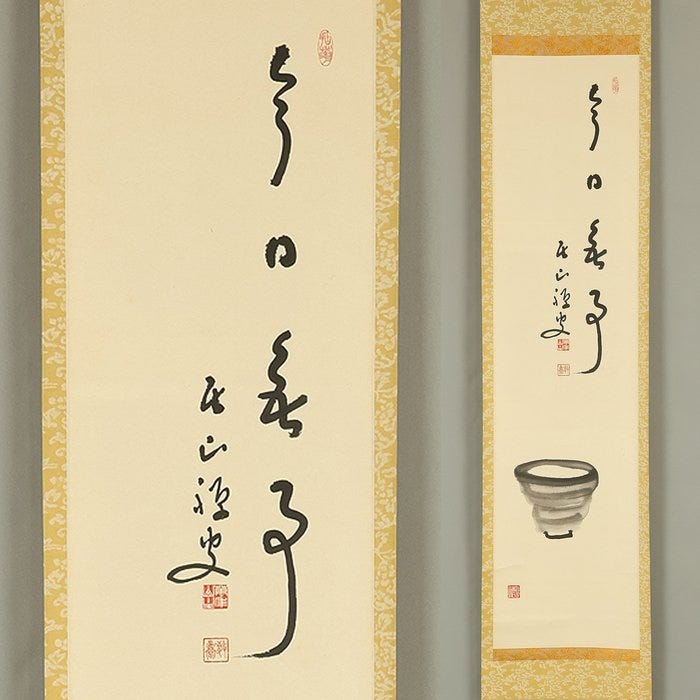 今日無事
山禅叟
今日無事
山禅叟